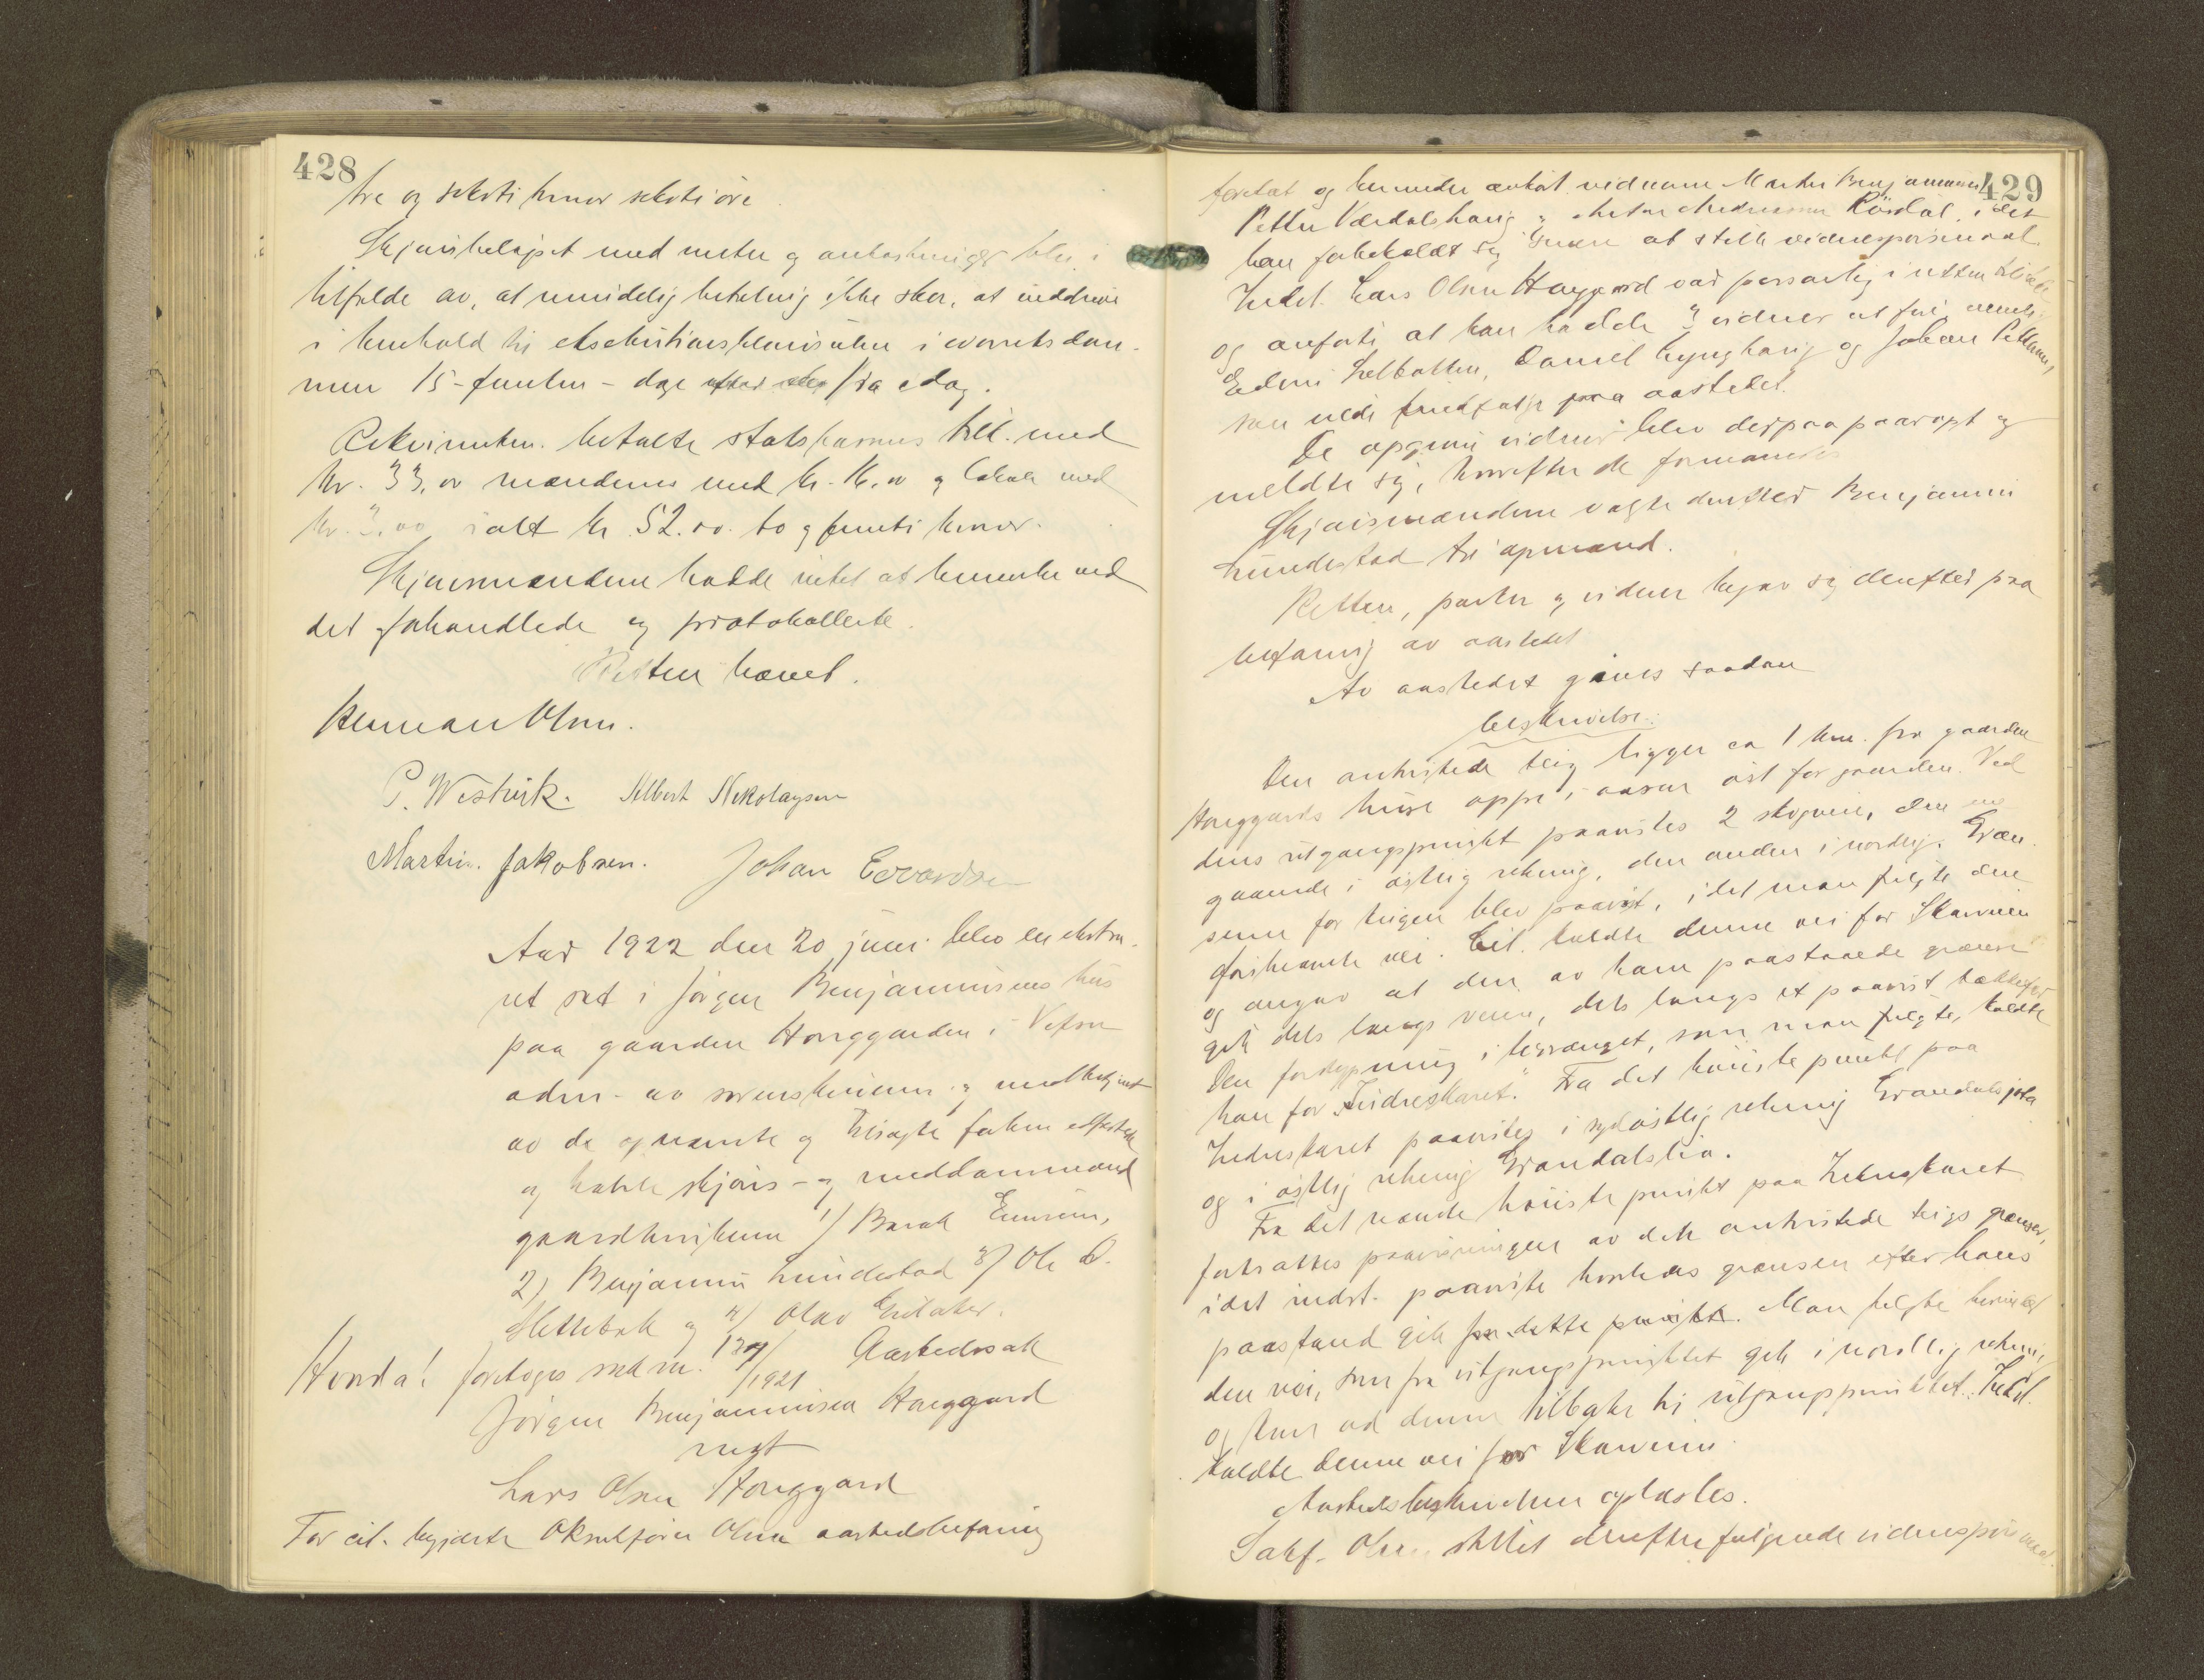 428
tre og seksti kroner seksti øre.
Skjønsbeløpet med renter og omkostninger blir i
tilfælde av, at mindelig betaling ikke sker, at inddrive
i henhold til eksekutionsklausulen i
men 15 - femten - dage efter fra idag.
Rekvirenten betalte statskassens till. med
kr. 33,00 mændenes med kr. 16.00 og lokale med
kr. 3.00 ialt kr. 52.00. to og femti kroner.
Skjønsmændene hadde intet at bemerke ved
det forhandlede og protokollerte.
Retten hævet.
Herman Olsen.
P. Westvik. Albert Nikolaysen
Martin. Jakobsen. Johan Edvardsen
Aar 1922 den 20 juni blev en ekstra-
ret sat i Jörgen Benjaminsens hus
paa gaarden Hauggaarden i Vefsn
adm. av sorenskriveren og medbetjent
av de opnævnte og tilsagte forhen edfæstede
og habile skjöns- og meddommænd
gaardbrukerne 1/ Barak
2) Benjamin Lundestad 3/ Ole D.
og 4/ Olav
Hvorda! foretoges sak nr. 129/1921 Aastedssak
Jörgen Benjaminsen Hauggaard
mot
Lars Olsen Hauggaard
For cit. begjærte Oksakfører Olsen aastedsbefaring
429
foretat og herunder avhørt vidnerne Martin Benjaminsen
Petter Værdalshaug og Andreassen Röisdal, idet
han forbeholdt sig senere at stille vidnespörsmaal.
Indst. Lars Olsen Haugaard var personlig i retten tilstede
og anførte at han hadde 3 vidner at føre, nemlig
Daniel Lynghaug og Johan Pettersen,
som vilde paa aastedet.
De opgivne vidner blev derpaa paaropt og
meldte sig, hvorefter de formanedes
Skjønsmændene valgte derefter Benjamin
Lundestad til opmand.
Retten, parter og vidner begav sig derefter paa
befaring av aastedet
Av aastedet gives saadan
beskrivelse:
Den omtvistede teig ligger ca 1 km. fra gaarden
Haugaards huse oppe i aasen øst for gaarden. Ved
dens utgangspunkt paavistes 2 skogveie, den ene
gaaende i østlig retning, den anden i nordlig. Græn-
sene for teigen blev paavist, idet man fulgte den
førstnævnte vei. Cit. kaldte denne vei for Skarveien
og angav at den av ham paastaaede grænse
gik dels langs veien, dels langs et paavist
Den fordypning i terrænget, som man fulgte, kaldte
han for "Indreskaret". Fra det høieste punkt paa
Indreskaret paavistes i sydøstlig retning
og i østlig retning Grandalslia.
Fra det nævnte høieste punkt paa
fortsattes paavisningen av den omtvistede teigs grænser,
idet indst. paaviste hvorledes grænsen efter hans
paastand gik fra dette punkt. Man fulgte
den vei, som fra utgangspunktet gik i nordlig retning
og kom ad denne tilbake til utgangspunktet. Indst.
kaldte denne vei for Skarveien.
Aastedsbeskrivelsen oplæstes.
Sakf. Olsen stillet derefter følgende vidnespörsmaal.